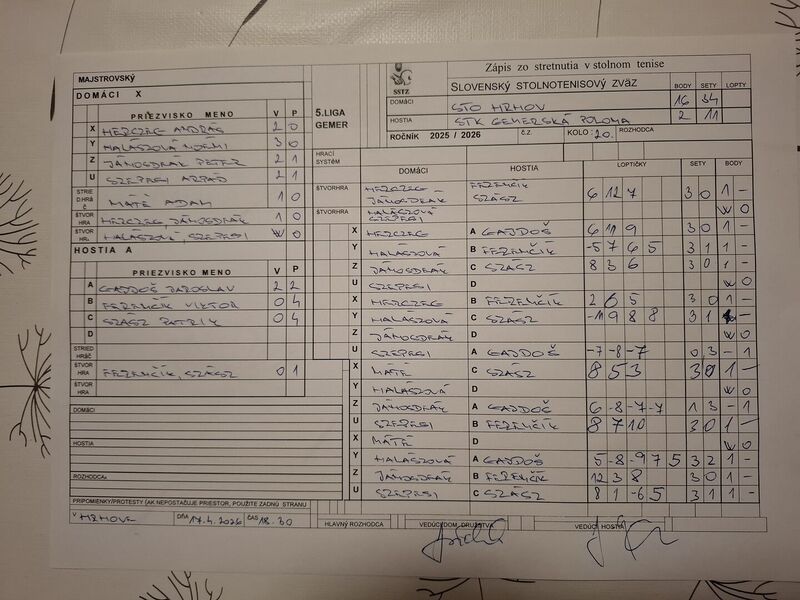 Zápis zo stretnutia v stolnom tenise
SSTZ
SLOVENSKÝ STOLNOTENISOVÝ ZVÄZ
BODY SETY LOPTY
DOMÁCI STO HRHOV 16 34
HOSTIA STK GEMERSKÁ POLOMA 2 11
ROČNÍK 2025 / 2026 Č.Z. KOLO: 20. ROZHODCA
MAJSTROVSKÝ
5.LIGA
GEMER
DOMÁCI X
PRIEZVISKO MENO V P
X HERCZEG ANDRÁS 2 0
Y HALÁSZOVÁ NOEMI 3 0
Z JÁNOSDEÁK PETER 2 1
U SZEPESI ARPÁD 2 1
STRIED.HRÁČ MÁTÉ ADAM 1 0
ŠTVORHRA HERCZEG, JÁNOSDEÁK 1 0
ŠTVORHRA HALÁSZOVÁ, SZEPESI W 0
HOSTIA A
PRIEZVISKO MENO V P
A GAJDOŠ JAROSLAV 2 2
B FERENČÍK VIKTOR 0 4
C SZÁSZ PATRIK 0 4
D
STRIED HRÁČ
ŠTVORHRA FERENČÍK, SZÁSZ 0 1
ŠTVORHRA
DOMÁCI
HOSTIA
ROZHODCA:
PRIPOMIENKY/PROTESTY (AK NEPOSTAČUJE PRIESTOR, POUŽITE ZADNÚ STRANU
V HRHOVE DŇA 17.4.2026 ČAS 18.30
HRACÍ SYSTÉM DOMÁCI HOSTIA LOPTIČKY SETY BODY
ŠTVORHRA HERCZEG - JÁNOSDEÁK FERENČÍK SZÁSZ 6 12 7 3 0 1 -
ŠTVORHRA HALÁSZOVÁ SZEPESI W 0
X HERCZEG A GAJDOŠ 6 11 9 3 0 1 -
Y HALÁSZOVÁ B FERENČÍK -5 7 6 5 3 1 1 -
Z JÁNOSDEÁK C SZÁSZ 8 3 6 3 0 1 -
U SZEPESI D W 0
X HERCZEG B FERENČÍK 2 6 5 3 0 1 -
Y HALÁSZOVÁ C SZÁSZ -11 9 8 8 3 1 1 -
Z JÁNOSDEÁK D W 0
U SZEPESI A GAJDOŠ -7 -8 -7 0 3 - 1
X MÁTÉ C SZÁSZ 8 5 3 3 0 1 -
Y HALÁSZOVÁ D W 0
Z JÁNOSDEÁK A GAJDOŠ 6 -8 -7 -7 1 3 - 1
U SZEPESI B FERENČÍK 8 7 10 3 0 1 -
X MÁTÉ D W 0
Y HALÁSZOVÁ A GAJDOŠ 5 -8 -9 7 5 3 2 1 -
Z JÁNOSDEÁK B FERENČÍK 12 3 8 3 0 1 -
U SZEPESI C SZÁSZ 8 1 -6 5 3 1 1 -
HLAVNÝ ROZHODCA VEDÚCI DOM. DRUŽSTVA VEDÚCI HOSTÍ